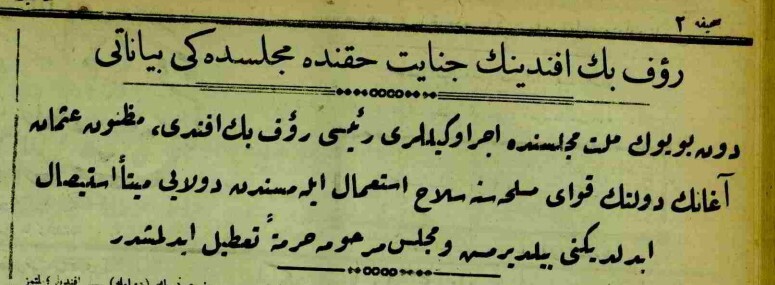 صحيفه ٢
رؤف بك افندينك جنايت حقنده مجلسده‌كى بياناتى
دون بويوك ملت مجلسنده اجرا وكيللرى رئيسى رؤف بك افندى، مظنون عثمان
آغانك دولتك قواى مسلحه‌سنه سلاح استعمال ايله‌مسندن دولايى ميتاً استيصال
ايدلديكنى بيلديرمش ومجلس مرحومه حرمةً تعطيل ايدلمشدر